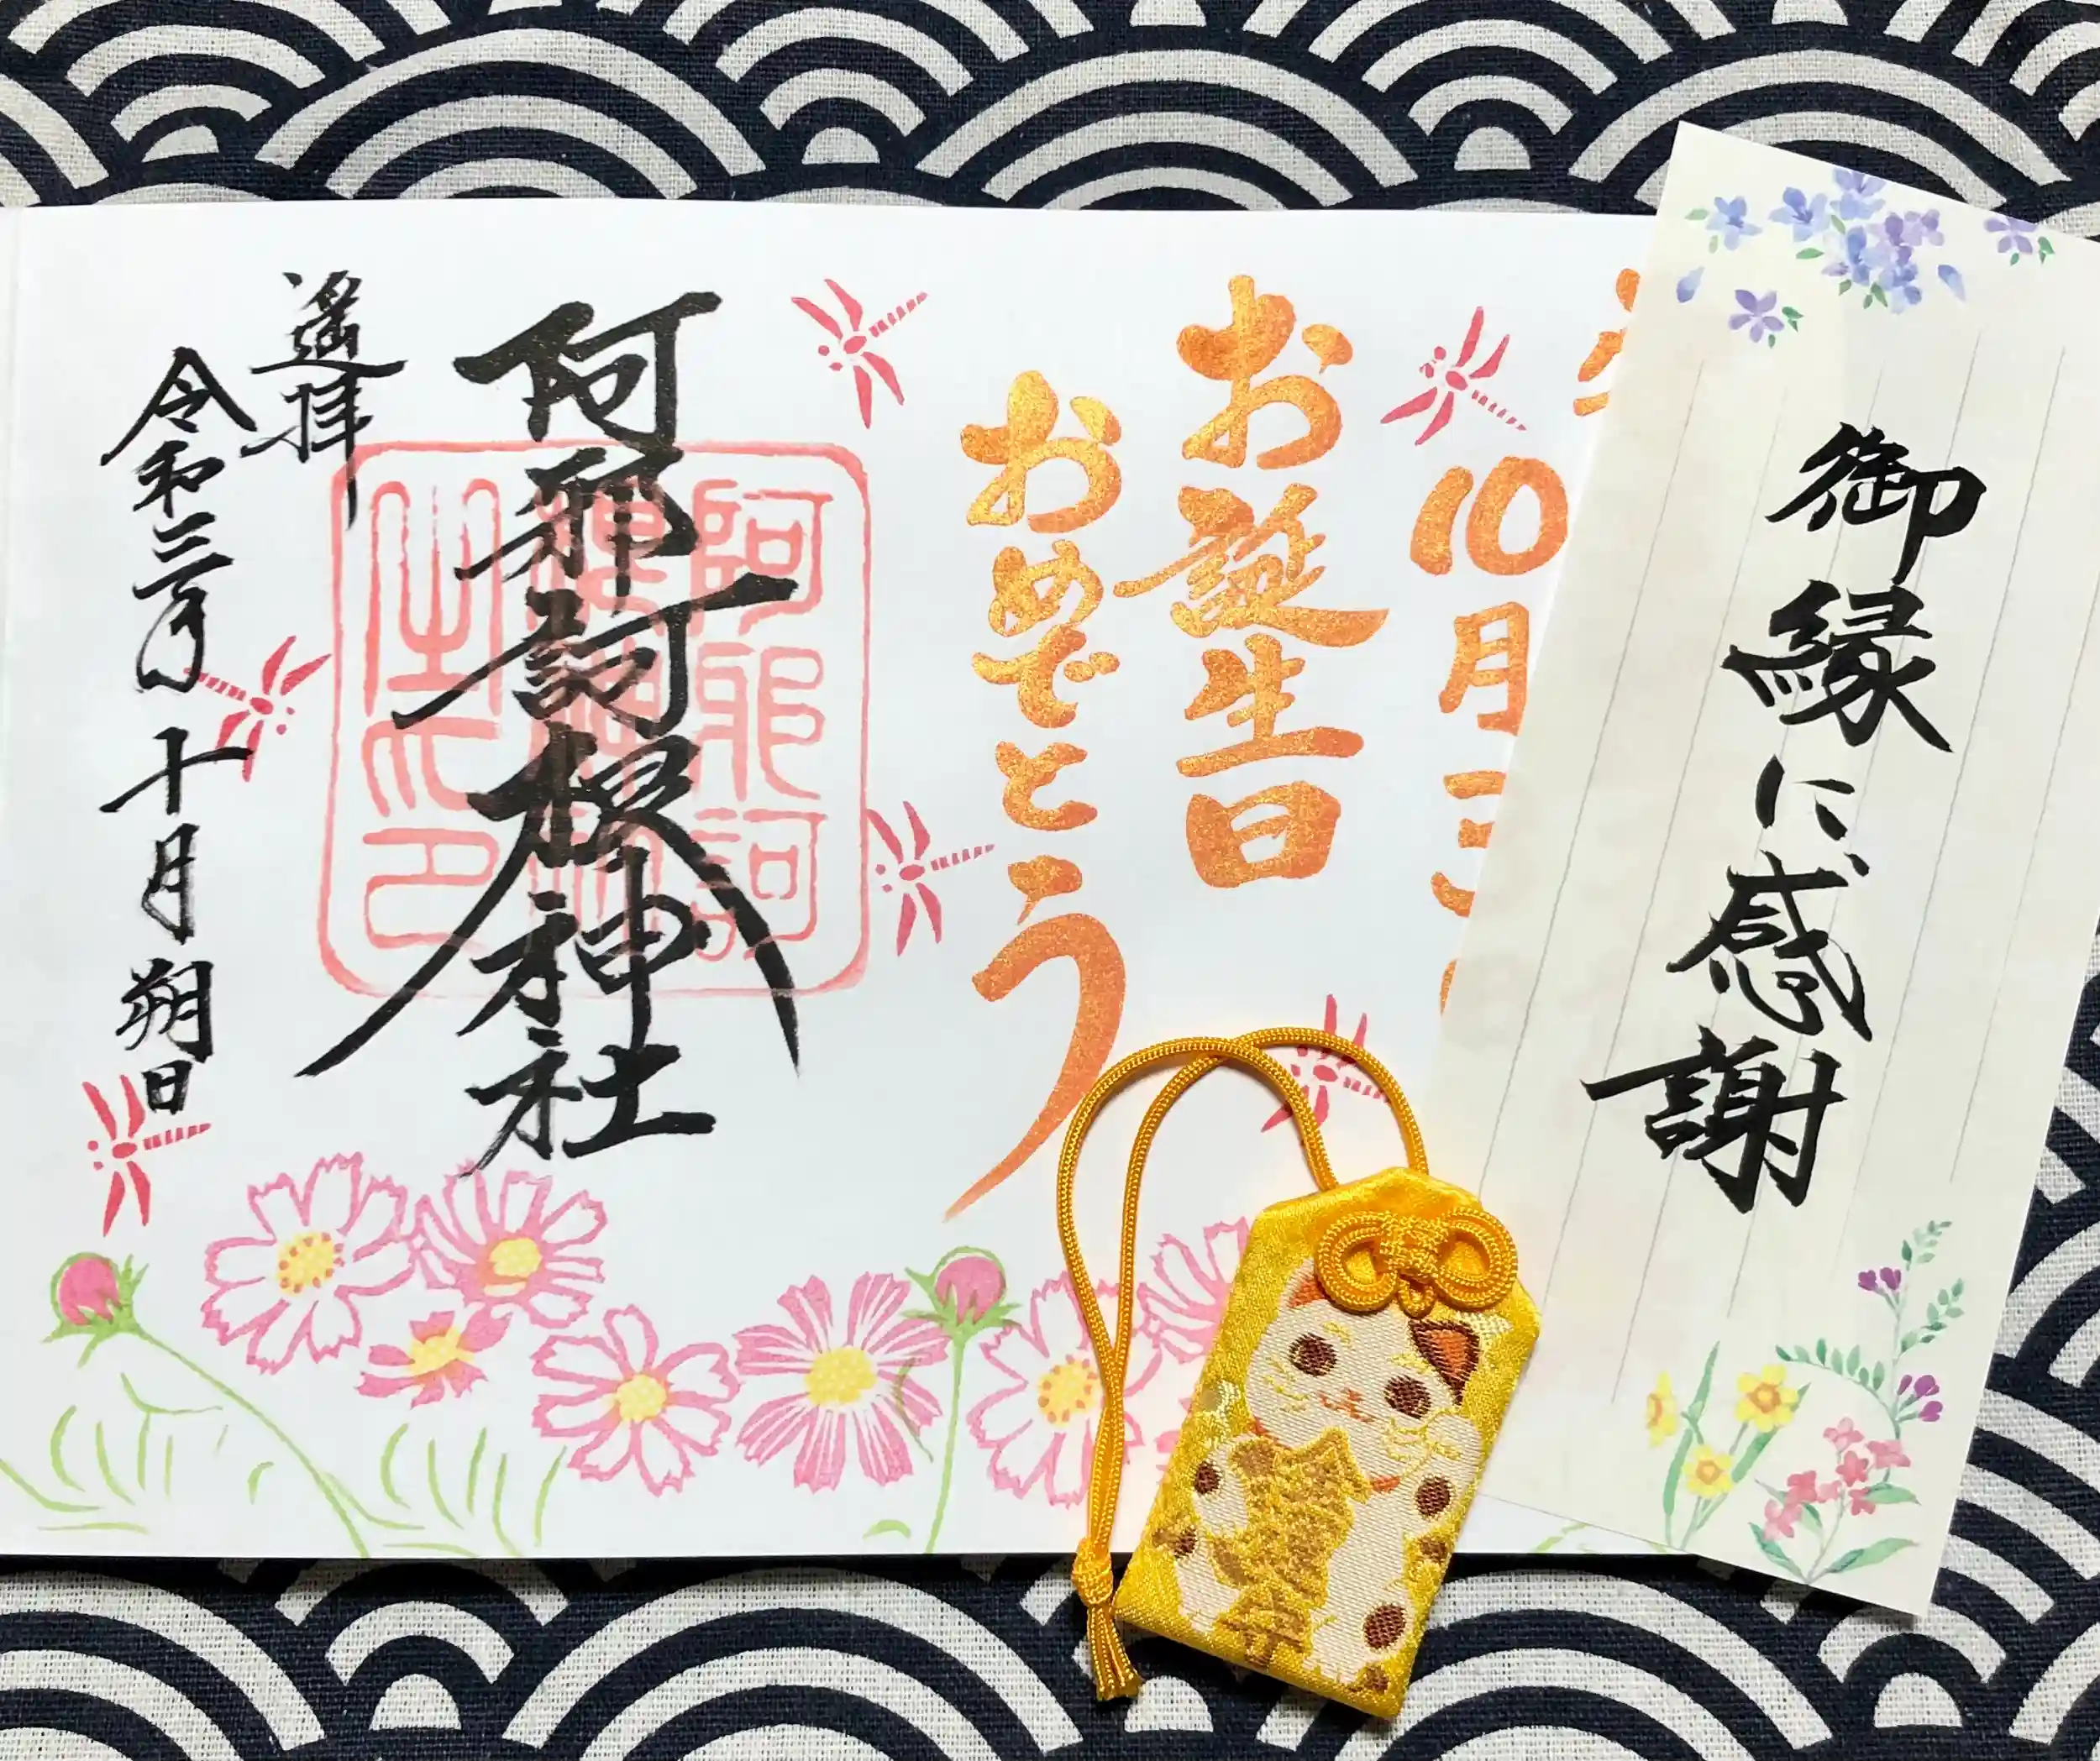 御縁に感謝
10月
お誕生日
おめでとう
阿邪訶根神社
遥拝
令和三年十月朔日